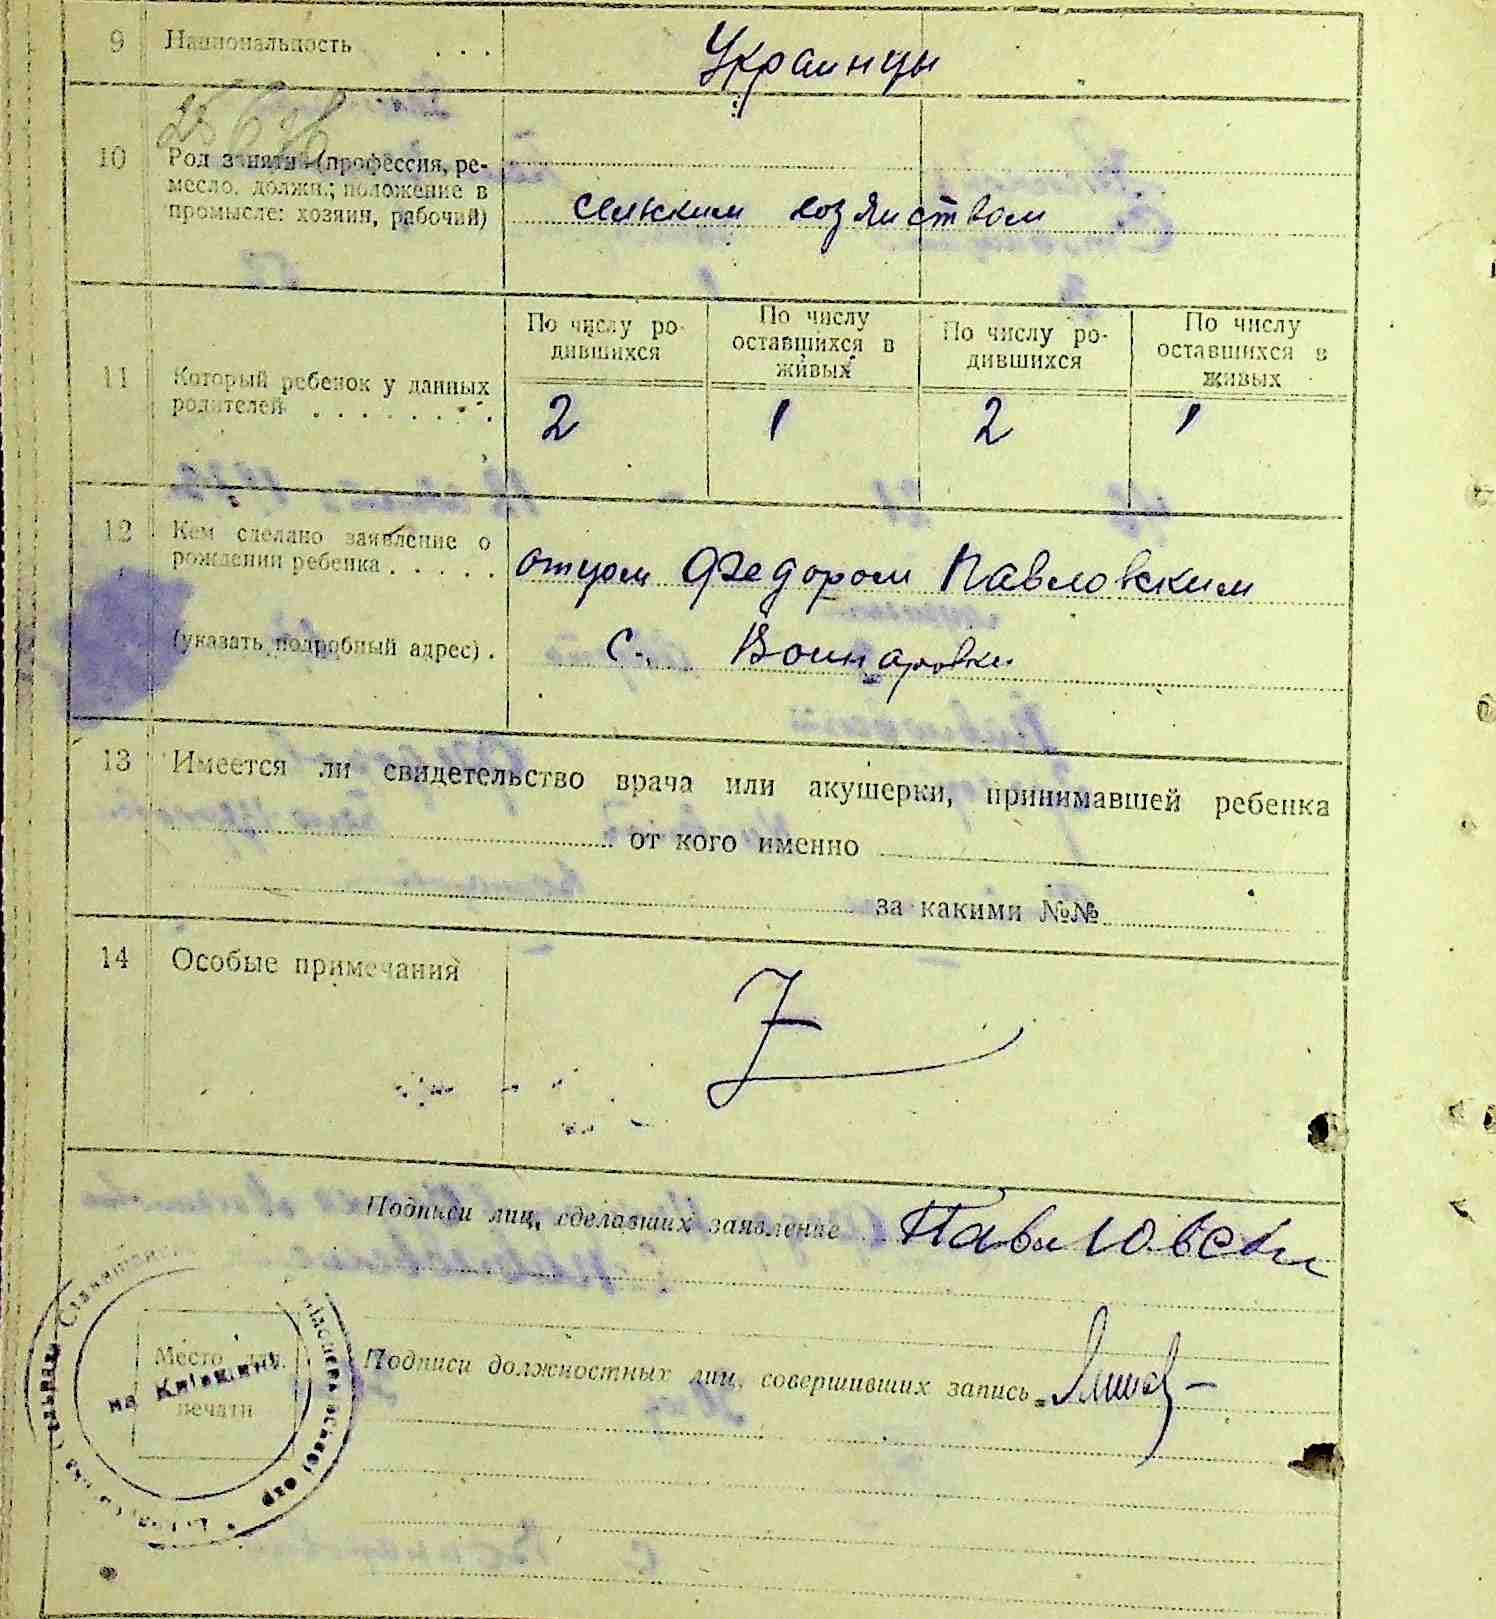 9 Национальность . . .
Украинцы
10 Род занятий (профессия, ре-
месло, должн.; положение в
промысле: хозяин, рабочий)
сельским хозяйством
По числу ро-
дившихся
По числу
оставшихся в
живых
По числу ро-
дившихся
По числу
оставшихся в
живых
11 Который ребенок у данных
родителей . . . . . . . .
2 1 2 1
12 Кем сделано заявление о
рождении ребенка . . . . .
отцом Федором Павловским
(указать подробный адрес) .
с. Воинаровки
13 Имеется ли свидетельство врача или акушерки, принимавшей ребенка
от кого именно
за какими №№
14 Особые примечания
Z
Подписи лиц, сделавших заявление Павловски
Место для
печати
на Київщині
Подписи должностных лиц, совершивших запись